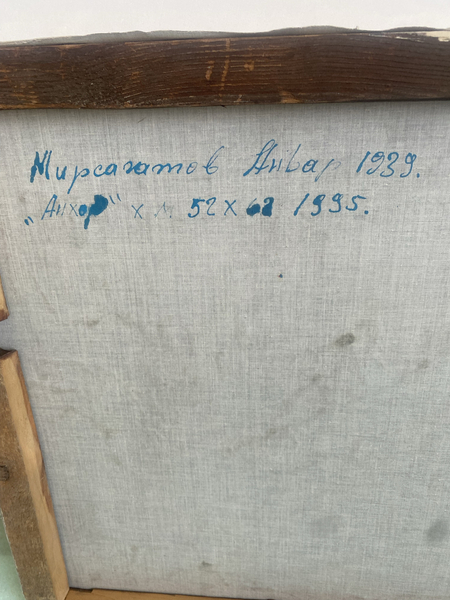 Мирсагатов Анвар 1939.
„Анхор" х м 52 х 62 1995.